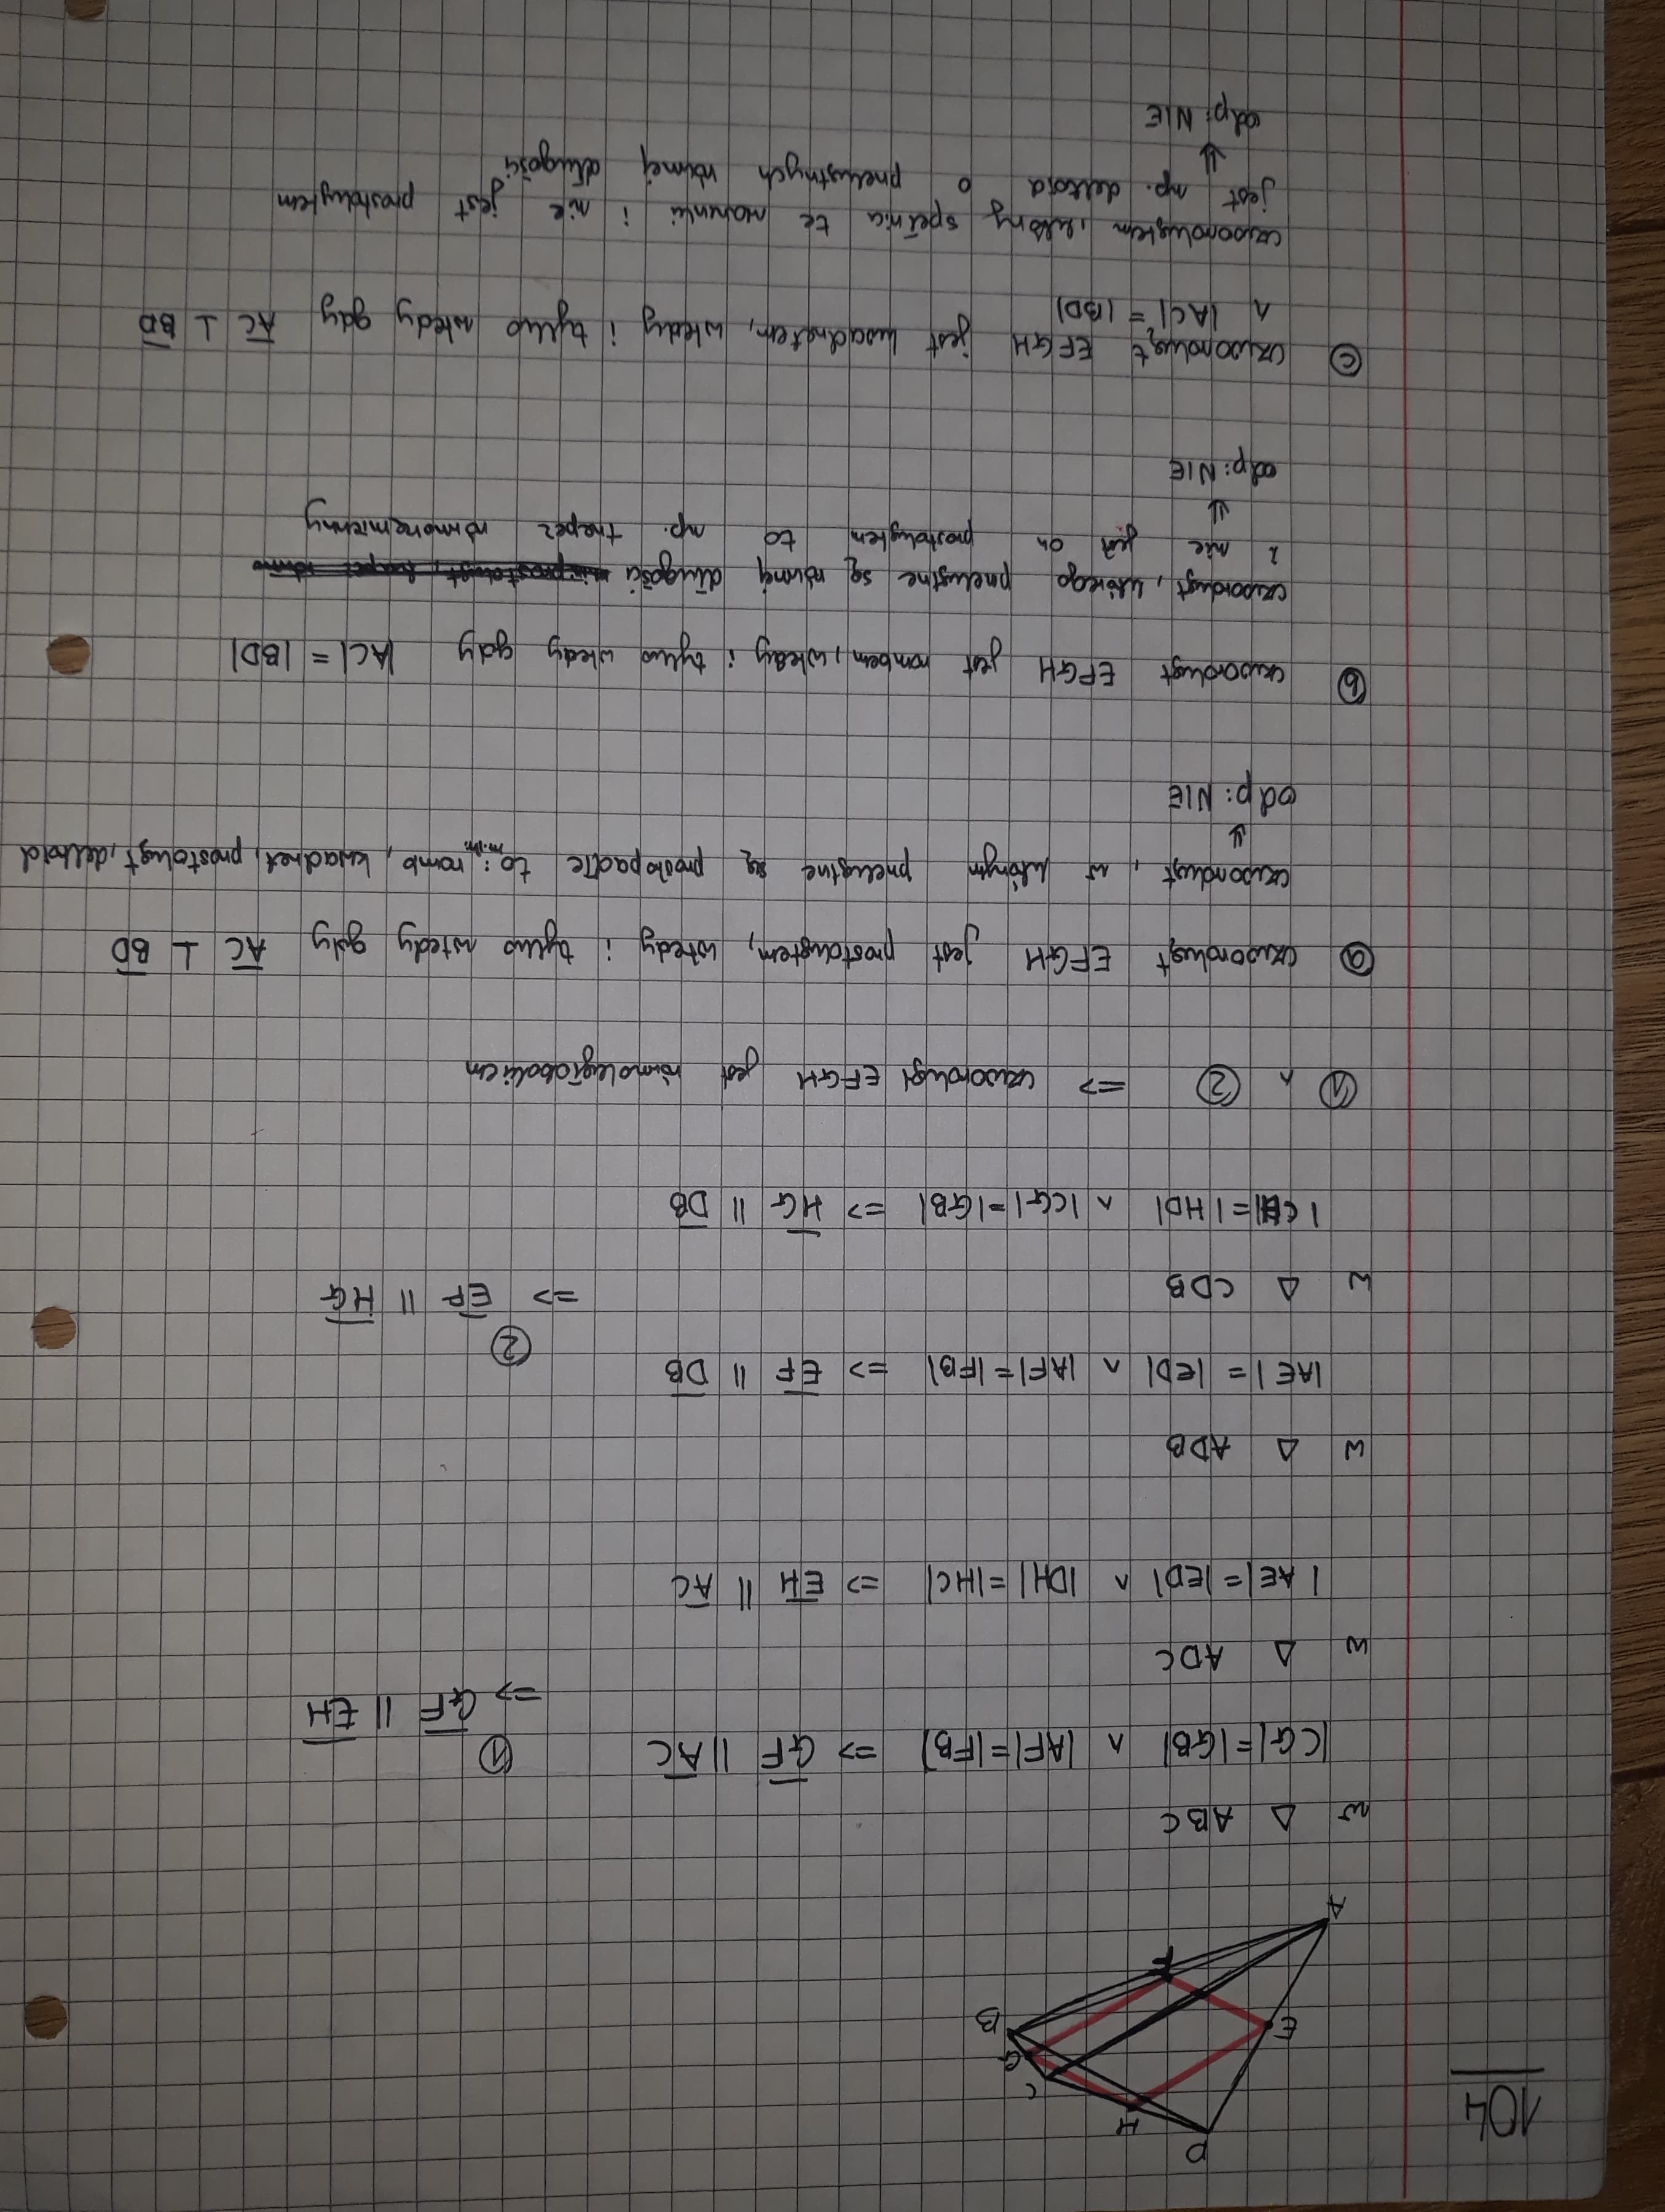 104
D
H
C
E
G
B
F
A
w Δ ABC
|CG|=|GB| ∧ |AF|=|FB| => GF || AC
① => GF || EH
w Δ ADC
|AE|=|ED| ∧ |DH|=|HC| => EH || AC
w Δ ADB
|AE|=|ED| ∧ |AF|=|FB| => EF || DB
② => EF || HG
w Δ CDB
|CH|=|HD| ∧ |CG|=|GB| => HG || DB
① ∧ ② => czworokąt EFGH jest równoległobokiem
ⓐ czworokąt EFGH jest prostokątem, wtedy i tylko wtedy gdy AC ⊥ BD
czworokąt, w którym przekątne są prostopadłe to m.in.: romb, kwadrat, prostokąt, deltoid
⇓
odp: NIE
ⓑ czworokąt EFGH jest rombem, wtedy i tylko wtedy gdy |AC| = |BD|
czworokąt, którego przekątne są równej długości
i nie jest on prostokątem to np. trapez równoramienny
⇓
odp: NIE
ⓒ czworokąt EFGH jest kwadratem, wtedy i tylko wtedy gdy AC ⊥ BD
∧ |AC| = |BD|
czworokątem, który spełnia te warunki i nie jest prostokątem
jest np. deltoid o przekątnych równej długości
⇓
odp: NIE